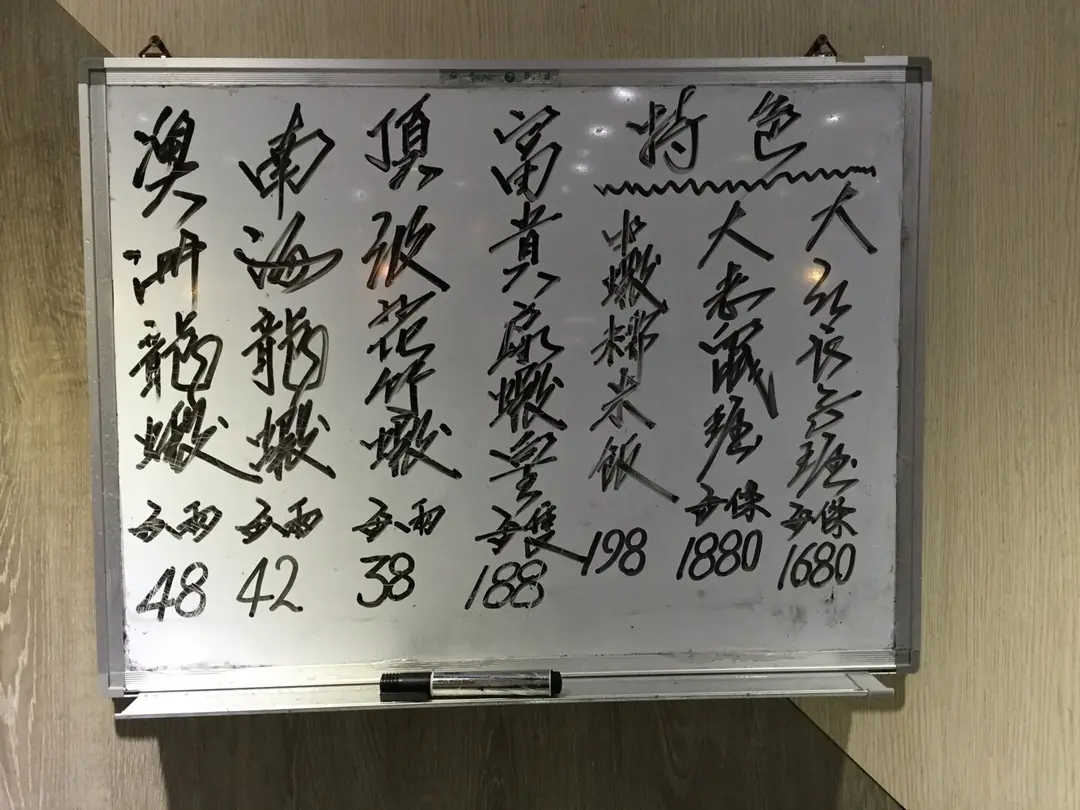 特色
大斑每條1680
大老鼠斑每條1880
蝦米飯198
富貴蝦皇每隻188
頂級花竹蝦每兩38
南海龍蝦每兩42
澳洲龍蝦每兩48